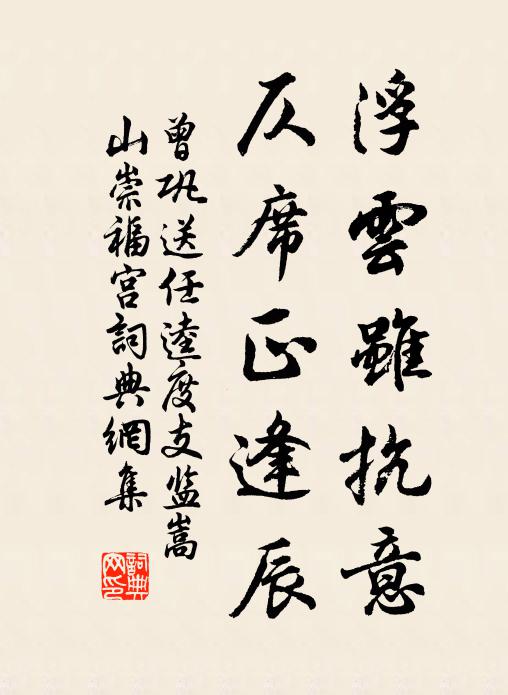 浮雲雖抗意
仄席正逢辰
曾巩送任逵度支监嵩
山崇福宫詞典網集
詞典网印